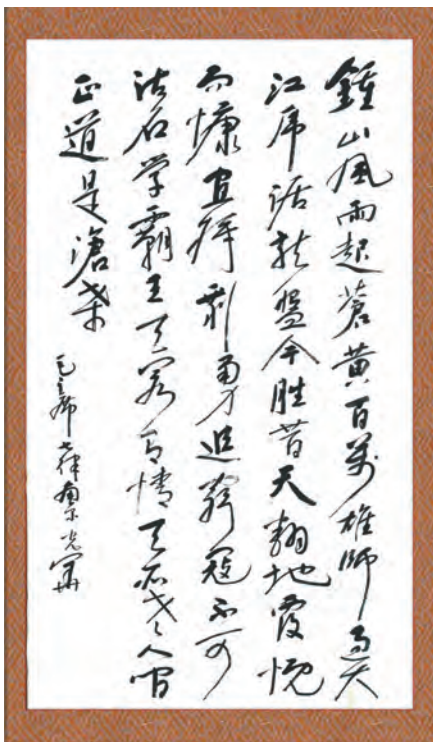 鍾山風雨起蒼黄百萬雄師過大
江虎踞龙盤今胜昔天翻地覆慨
而慷宜將剩勇追窮寇不可
沽名学霸王天若有情天亦老人间
正道是滄桑
毛主席七律南京